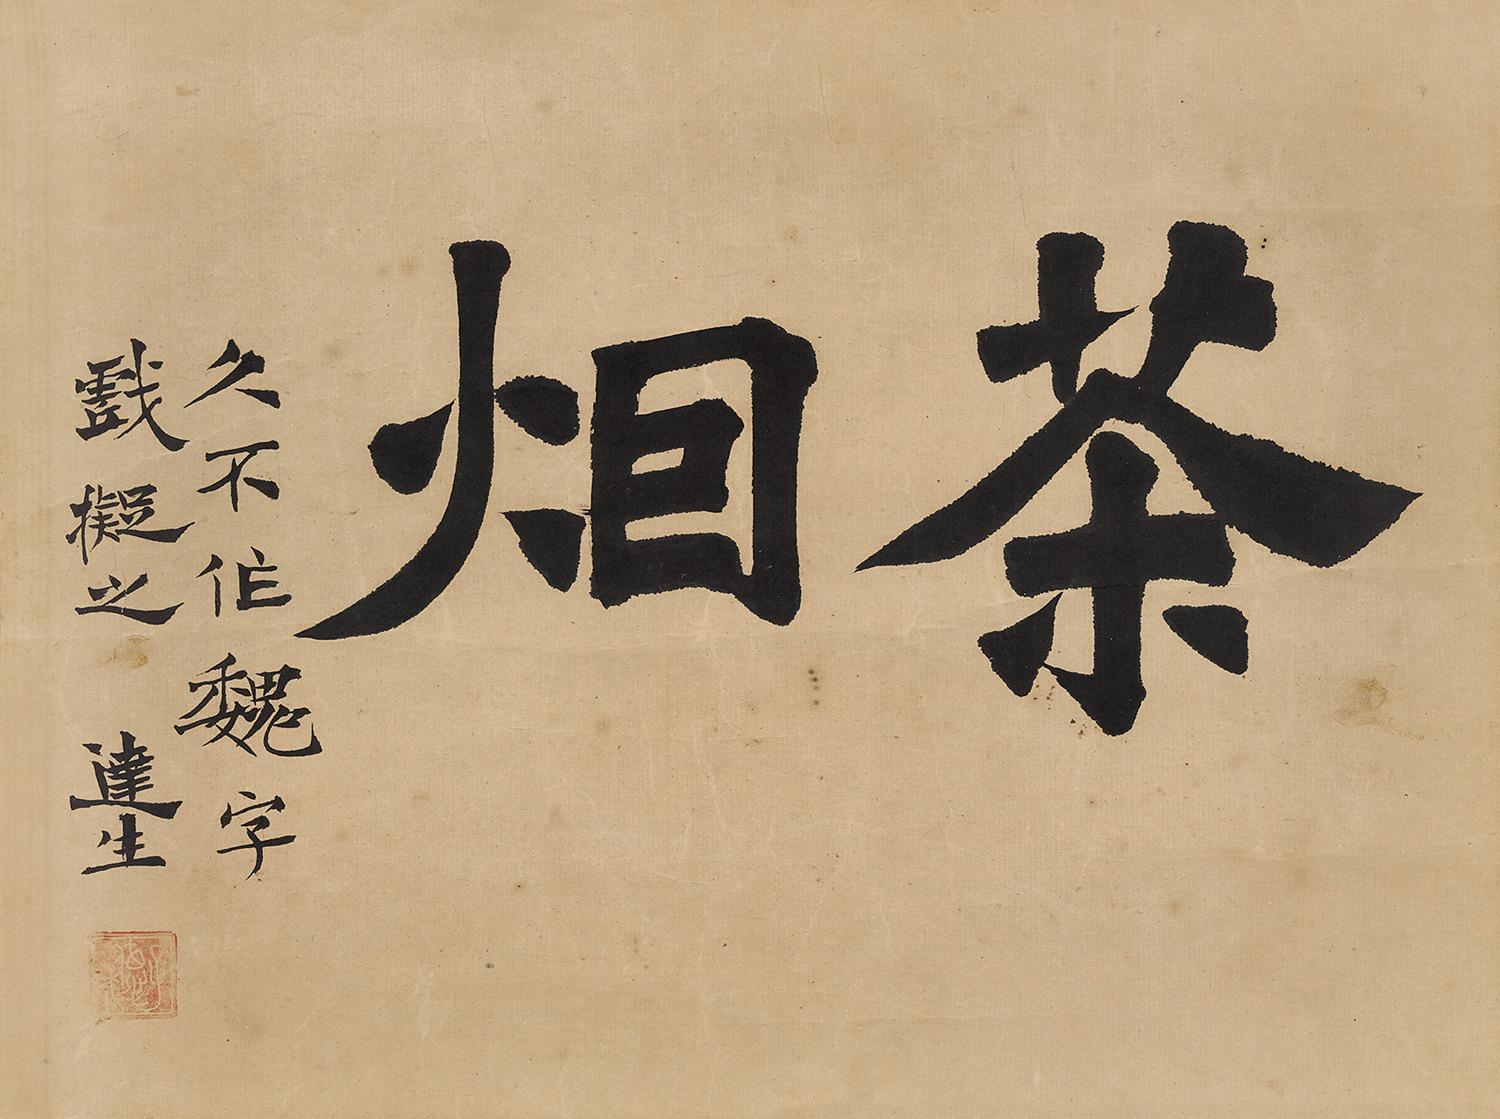 茶烟
久不作魏字
戲擬之 達生